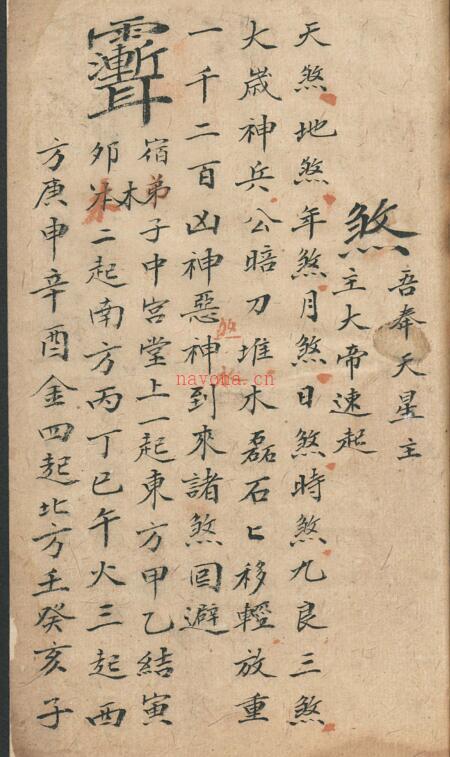 煞
吾奉天星主
主大帝速起
天煞地煞年煞月煞日煞時煞九良三煞
大歲神兵公暗刀堆木磊石匕移輕放重
一千二百凶神惡神到來諸煞囬避
宿弟子中宮堂上一起東方甲乙結寅
卯木二起南方丙丁巳午火三起西
方庚申辛酉金四起北方壬癸亥子
nayona.cn